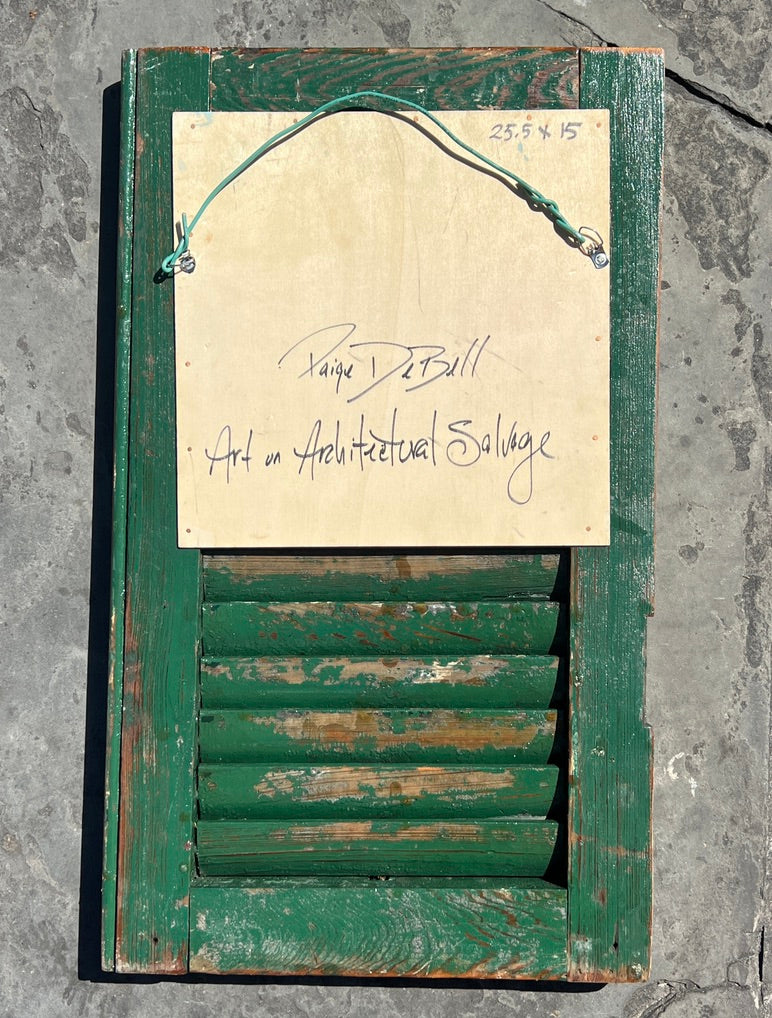 25.5 x 15
Paige DeBell
Art on Architectural Salvage